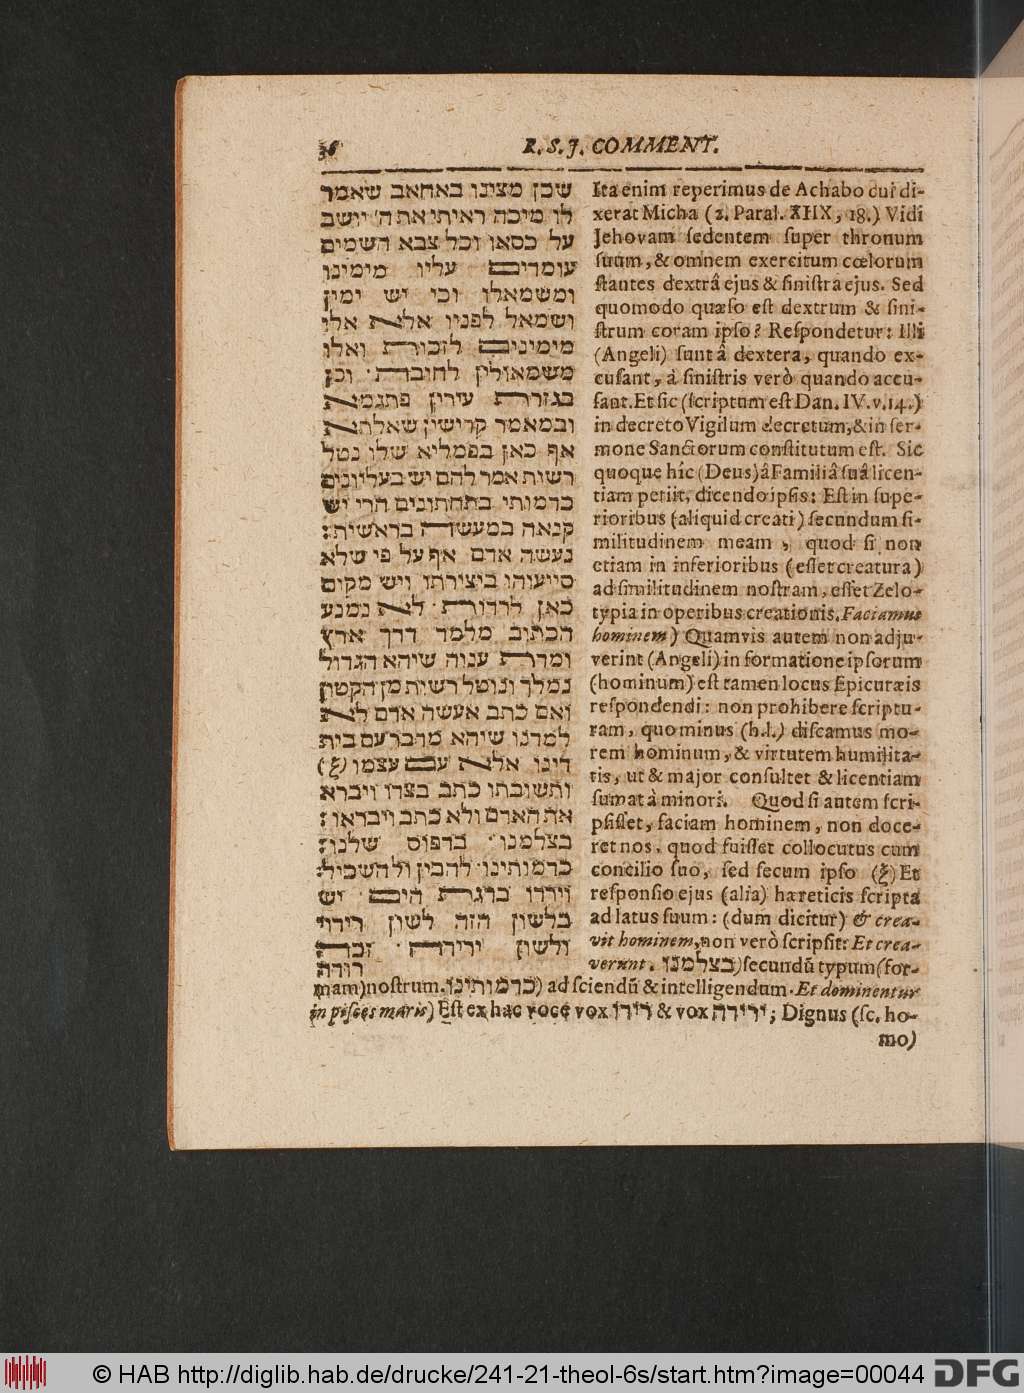 36 R. S. J. COMMENT.
שכן מצינו באחאב שאמר
לו מיכה ראיתי את ה' יושב
על כסאו וכל צבא השמים
עומדים עליו מימינו
ומשמאלו וכי יש ימין
ושמאל לפניו אלא אלו
מימינים לזכות ואלו
משמאולין לחובת. וכן
בגזרת עירין פתגמא
ובמאמר קדישין שאלתא
אף כאן בפמליא שלו נטל
רשות אמר להם יש בעליונים
כדמותי בתחתונים הרי יש
קנאה במעשה בראשית:
נעשה אדם אף על פי שלא
סייעוהו ביצירתו ויש מקום
כאן לרדות. לא נמנע
הכתוב מלמד דרך ארץ
ומדת ענוה שיהא הגדול
נמלך ונוטל רשות מן הקטון
ואם כתב אעשה אדם לא
למדנו שיהא מדבר עם בית
דינו אלא עם עצמו (ξ)
ותשובתו כתב בצדו ויברא
את האדם ולא כתב ויבראו:
בצלמנו. בדפוס שלנו:
כדמותינו. להבין ולהשכיל:
וירדו בדגת הים. יש
בלשון הזה לשון רידוי
ולשון ירידה. זכה
רודה
Ita enim reperimus de Achabo cui di-
xerat Micha (2. Paral. XIIX, 18.) Vidi
Jehovam ſedentem ſuper thronum
ſuum, & omnem exercitum cœlorum
ſtantes dextrâ ejus & ſiniſtra ejus. Sed
quomodo quæſo eſt dextrum & ſini-
ſtrum coram ipſo? Reſpondetur: Illi
(Angeli) ſunt â dextera, quando ex-
cuſant, à ſiniſtris verò quando accu-
ſant. Et ſic (ſcriptum eſt Dan. IV. v. 14.)
in decreto Vigilum decretum, & in ſer-
mone Sanctorum conſtitutum eſt. Sic
quoque hîc (Deus) â Familiâ ſuâ licen-
tiam petiit, dicendo ipſis: Eſt in ſupe-
rioribus (aliquid creati) ſecundum ſi-
militudinem meam, quod ſi non
etiam in inferioribus (eſſet creatura)
ad ſimilitudinem noſtram, eſſet Zelo-
typia in operibus creationis. Faciamus
hominem) Quamvis autem non adju-
verint (Angeli) in formatione ipſorum
(hominum) eſt tamen locus Epicuræis
reſpondendi: non prohibere ſcriptu-
ram, quo minus (h.l.) diſcamus mo-
rem hominum, & virtutem humilita-
tis, ut & major conſultet & licentiam
ſumat à minori. Quod ſi autem ſcri-
pſiſſet, faciam hominem, non doce-
ret nos, quod fuiſſet collocutus cum
concilio ſuo, ſed ſecum ipſo (ξ) Et
reſponſio ejus (alia) hæreticis ſcripta
ad latus ſuum: (dum dicitur) & crea-
vit hominem, non verò ſcripſit: Et crea-
verunt. בצלמנו) ſecundũ typum (for-
mam) noſtrum. כדמותינו) ad ſciendũ & intelligendum. Et dominentur
in piſces maris) Eſt ex hac voce vox רידוי & vox ירידה; Dignus (ſc. ho-
mo)
© HAB http://diglib.hab.de/drucke/241-21-theol-6s/start.htm?image=00044 DFG